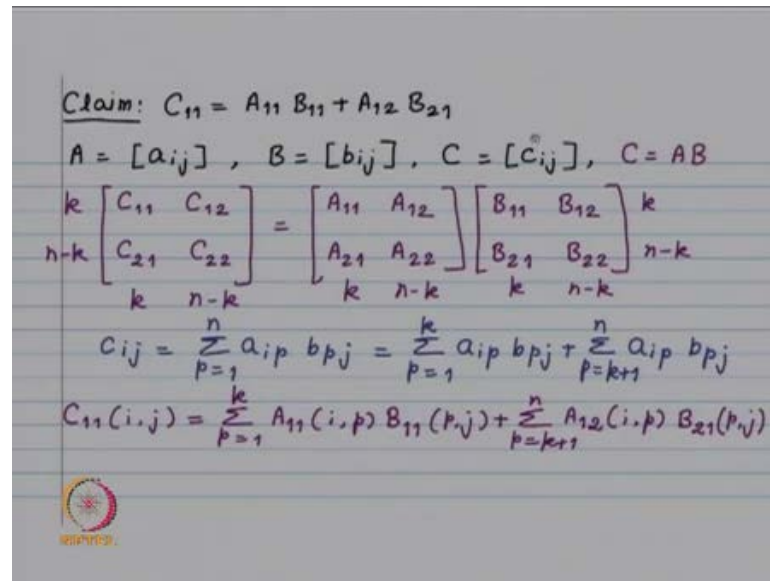 Claim: C₁₁ = A₁₁ B₁₁ + A₁₂ B₂₁
A = [aᵢⱼ] , B = [bᵢⱼ], C = [cᵢⱼ], C = AB
k [ C₁₁ C₁₂ ] = [ A₁₁ A₁₂ ] [ B₁₁ B₁₂ ] k
n-k [ C₂₁ C₂₂ ] [ A₂₁ A₂₂ ] [ B₂₁ B₂₂ ] n-k
k n-k k n-k k n-k
cᵢⱼ = Σ_{p=1}^{n} a_{ip} b_{pj} = Σ_{p=1}^{k} a_{ip} b_{pj} + Σ_{p=k+1}^{n} a_{ip} b_{pj}
C₁₁(i,j) = Σ_{p=1}^{k} A₁₁(i,p) B₁₁(p,j) + Σ_{p=k+1}^{n} A₁₂(i,p) B₂₁(p,j)